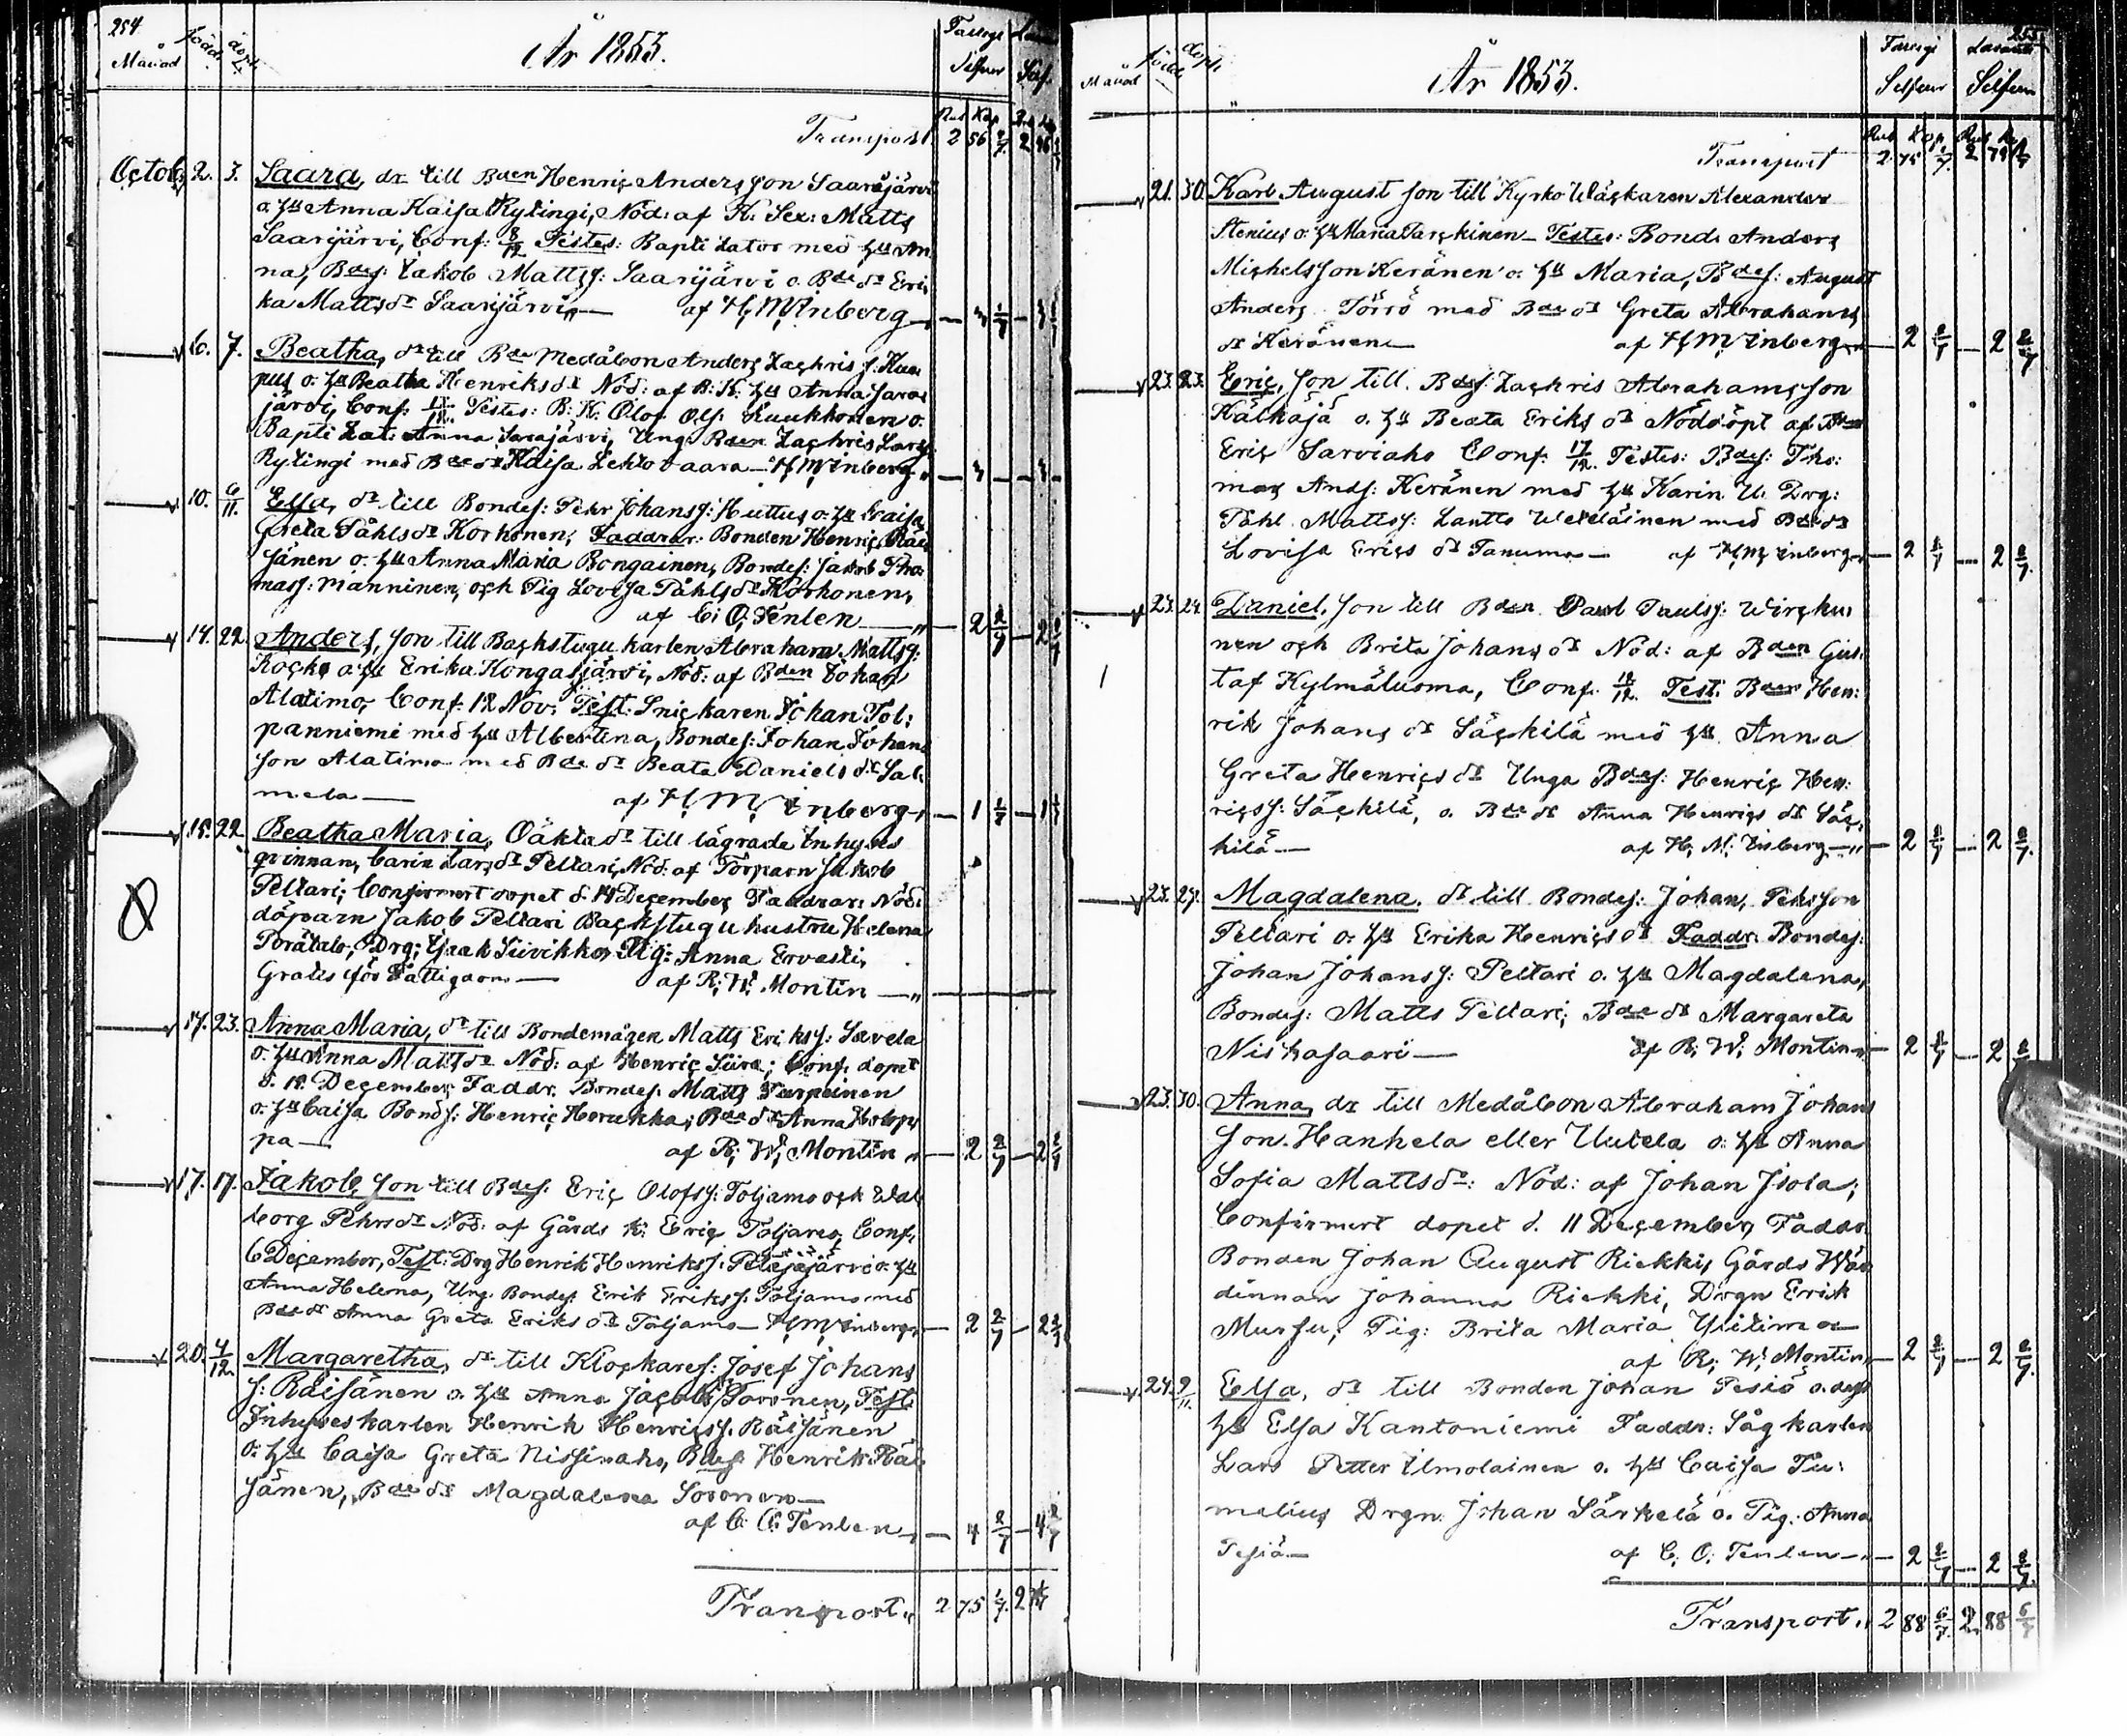 254.
Månad född. döpt.
År 1853.
Transport 2 56 2
Octob. 2. 3. Saara, dr till Bden Henric Andersson Saarijärvi
o. hu Anna Kaisa Rytingi, Nöd: af K: Sex: Matts
Saarijärvi, Conf: 8/12 Testes: Baptizator med hu An
na, Bdes: Jakob Mattss: Saarijärvi o. Bde dr Eri
ka Matts dr Saarijärvi — af H. M. Enberg
6. 7. Beatha, dr till Bde Medåbon Anders Zachris s:
o. hu Beatha Henriks dr Nöd: af B: K: hu Anna Sara
järvi, Conf: Testes: B: K: Olof Ols: Kuukkonen o.
Baptizat: Anna Sarajärvi, Ung: Bden Zachris Lars
Rytingi med Bde dr Kaisa Lehtovaara — H M Enberg
10. 6/11. Elsa, dr till Bondes: Pehr Johanss: Huttus o. hu Caisa
Greta Påhls dr Korhonen, Faddrar: Bonden Henric Räi
sänen o. hu Anna Maria Bongainen, Bondes: Jakob Tho
mass: Manninen, och Pig Lovisa Påhls dr Korhonen,
af C: O: Fenlen — 2 2/7 — 2
14. 22. Anders, son till Backstugu karlen Abraham Matts s:
o. hu Erika Kongasjärvi, Nöd: af Bden Johan
Alatimo, Conf: 12 Nov: Test: Snickaren Johan Tol:
panniemi med hu Albertina, Bondes: Johan Johans
son Alatimo med Bde dr Beata Daniels dr Sal
mela — af H, M, Enberg — 1 — 1
15. 22. Beatha Maria, Oäkta dr till lägrade Inhyses
qvinnan, Carin Lars dr Peltari, Nöd: af Torparn Jakob
Peltari; Confirmert dopet d. 14 December, Faddrar: Nöd:
döparn Jakob Peltari Backstugu hustru Helena
Drg: Isaak Siivikko, Pig: Anna Ervasti,
Gratis för Fattigdom — af R; W: Montin —
17. 23. Anna Maria, dr till Bondemågen Matts Eriks s: Savela
o. hu Anna Matts dr Nöd: af Henric Siira; Conf: dopet
d. 18 December, Faddr. Bondes. Matts Turpeinen
o. hu Caisa Bonds: Henric Horukka; Bde dr Anna Holap
pa — af R; W; Montin — 2 2/7 — 2 2/7
17. 17. Jakob, son till Bdes: Eric Olofs s: Toljamo och Wal
borg Pehrs dr Nöd. af Gårds k: Eric Toljamo, Conf,
6 December, Test: Drg Henrik Henriks s: o. hu
Anna Helena, Ung. Bondes. Erik Eriks s. Toljamo med
Bde dr Anna Greta Eriks dr Toljamo — H, M, Enberg — 2 2/7 — 2 2/7
20. 4/12. Margaretha, dr till Klockares: Josef Johans
s: Räisänen o. hu Anna Jacobs dr Soronen, Test.
Inhyseskarlen Henrik Henrics s. Räisänen
o: hu Caisa Greta Nissinaho, Bdes: Henrik Räi
sänen, Bde dr Magdalena Soronen —
af C. O. Fenlen — 4 2/7 — 4 2/7
Transport. 2 75 1/7. 2
255
Månad född döpt
År 1853.
Transport 2. 75 1/7.
21. 30. Karl August son till Kyrko Wäcktaren Alexander
Stenius o. hu Maria Tarkinen — Testes: Bonde Anders
Michelsson Keränen o. hu Maria, Bdes: August
Anders Törrö med Bde dr Greta Abrahams
dr Keränen — af H, M, Enberg — 2 2/7 — 2 2/7
23. 23. Eric, son till. Bdes: Zachris Abrahamsson
Kälkäjä o. hu Beata Eriks dr Nöddöpt af Bden
Eric Sarviaho Conf: 17/12. Testes: Bdes: Tho:
mas Ands: Keränen med hu Karin U. Drg:
Påhl Mattss: Lantto Weteläinen med Bde dr
Lovisa Erics dr Tanuma — af H, M, Enberg — 2 2/7 — 2 2/7
23. 24. Daniel, son till Bden Paul Paulss: Wirckun
nen och Brita Johans dr Nöd: af Bden Gus:
taf Kylmäluoma, Conf: 18/12. Test: Bden Hen:
rik Johans dr Säckilä med hu. Anna
Greta Henrics dr Unga Bdes: Henric Hen:
rics s: Säckilä, o. Bde dr Anna Henrics dr Säc
kilä — af H, M; Enberg — 2 2/7 — 2 2/7
23. 27. Magdalena, dr till Bondes: Johan, Pehrsson
Peltari o. hu Erika Henrics dr Faddr: Bondes:
Johan Johans s: Peltari o. hu Magdalena,
Bondes: Matts Peltari; Bde dr Margareta
Niskasaari — af R; W; Montin — 2 2/7 — 2
23. 30. Anna, dr till Medåbon Abraham Johans
son Hankela eller Uutela o. hu Anna
Sofia Matts dr: Nöd: af Johan Isola;
Confirmert dopet d. 11 December, Faddr.
Bonden Johan August Riekki, Gårds Wär
dinnan Johanna Riekki, Drgn Erik
Mursu, Pig: Brita Maria Ylitimo —
af R; W; Montin — 2 2/7 — 2 2/7
24. 9/11. Elsa, dr till Bonden Johan Pesiö o. dess
hu Elsa Kantoniemi Faddr: Såg karlen
Lars Petter Ilmolainen o. hu Caisa Tu:
melius Drgn Johan Särkelä o. Pig: Anna
Pesiö — af C. O: Fenlen — 2 2/7 — 2 2/7
Transport. 2 88 6/7. 2. 88 6/7